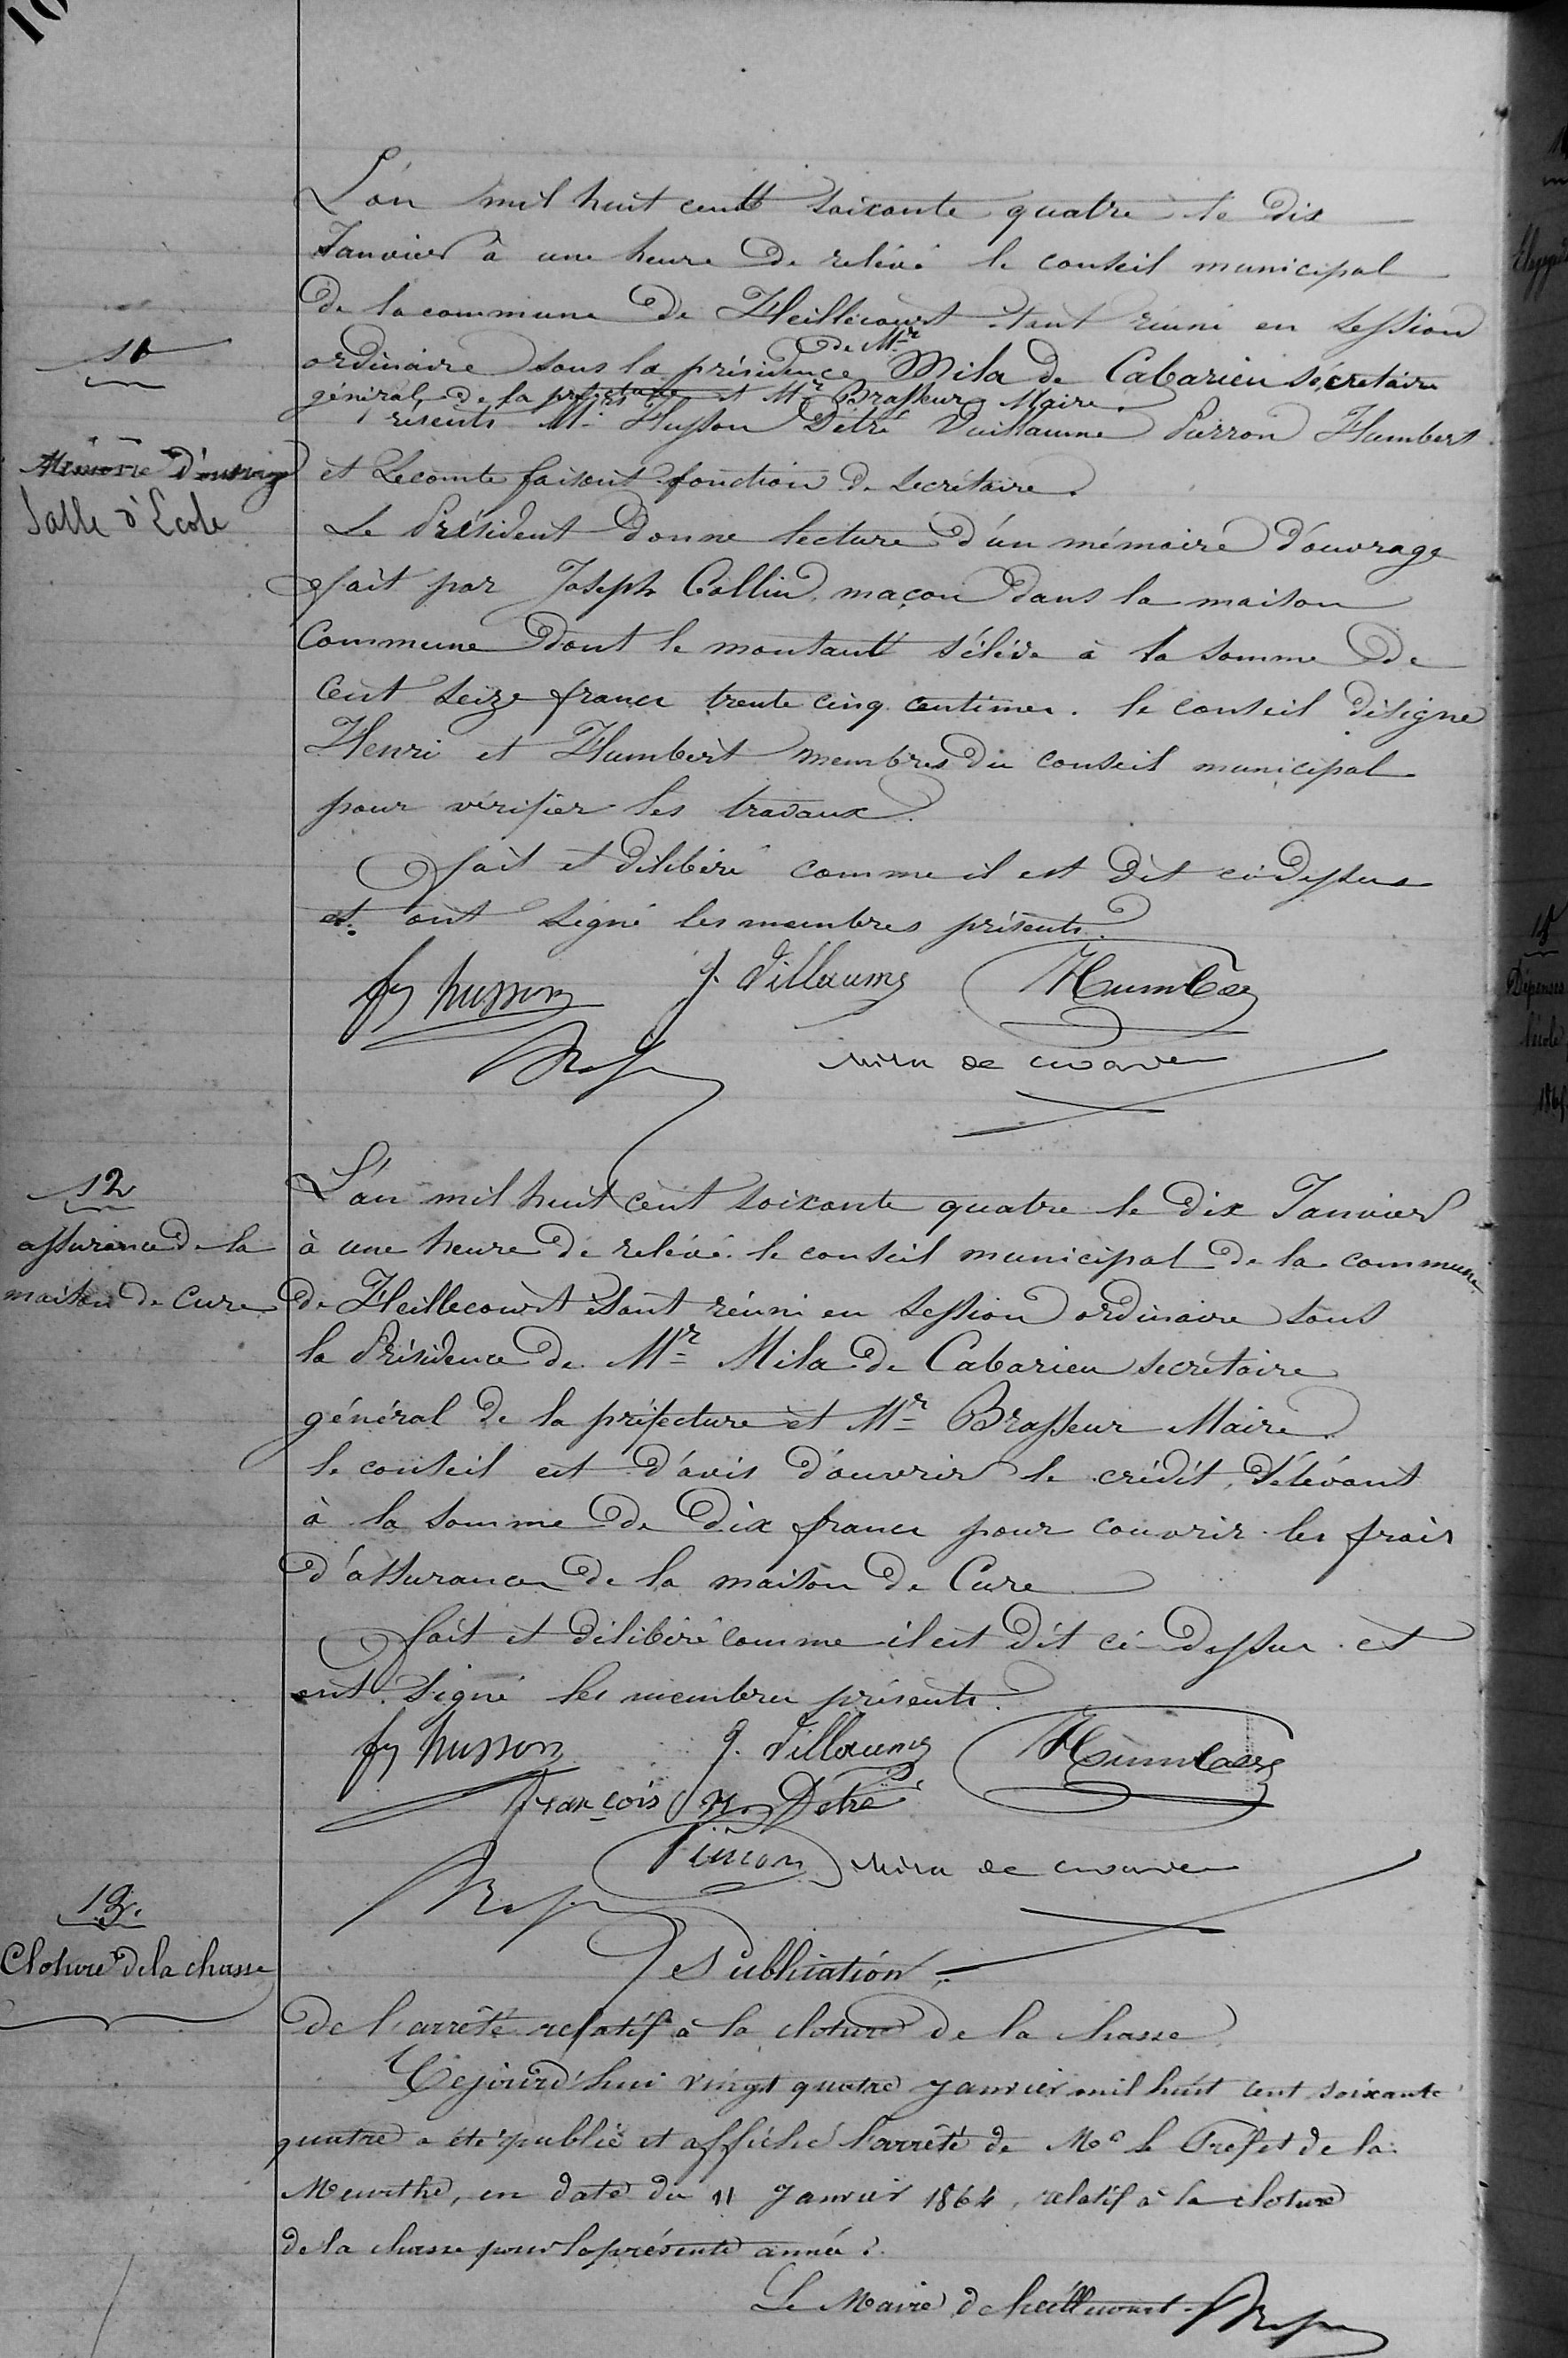 10
L'an mil huit cent soixante quatre le dix
Janvier à une heure de relévé le conseil municipal
de la commune de Heillecourt étant réuni en session
ordinaire sous la présidence de Mr Mila de Cabarieu sécretaire
général de la préfecture et Mr Brasseur Maire.
Présents Mrs Husson Détré Vuillaume Pierron Humbert
et Lecomte faisant fonction de secrétaire.
11
Mémoire d'ouvrage
Salle d'Ecole
Le Président donne lecture d'un mémoire d'ouvrage
fait par Joseph Collin, maçon dans la maison
Commune dont le montant s'élève à la somme de
Cent seize francs trente cinq centimes. le conseil désigne
Henri et Humbert membres du conseil municipal
pour vérifier les travaux.
fait et délibéré comme il est dit ci-dessus
et ont signé les membres présents.
fs husson J. Villaume Humbert
Mila de Cabarieu
12
assurance de la
maison de Cure
L'an mil huit cent soixante quatre le dix Janvier
à une heure de relévé le conseil municipal de la commune
de Heillecourt étant réuni en session ordinaire sous
la Présidence de Mr Mila de Cabarieu secrétaire
général de la préfecture et Mr Brasseur Maire.
le conseil est d'avis d'ouvrir le crédit, s'élévant
à la somme de dix francs pour couvrir les frais
d'assurances de la maison de Cure
fait et délibéré comme il est dit ci-dessus et
ont signé les membres présents.
fs husson J. Villaume Humbert
françois Détré
Mila de Cabarieu
13.
Cloture de la chasse
Publication
de l'arrêté relatif à la cloture de la chasse
Cejourd'hui vingt quatre janvier mil huit cent soixante
quatre a été publié et affiché l'arrêté de Mr le Préfet de la
Meurthe, en date du 11 Janvier 1864, relatif à la cloture
de la chasse pour la présente année.
Le Maire de heillecourt
18
Dépenses